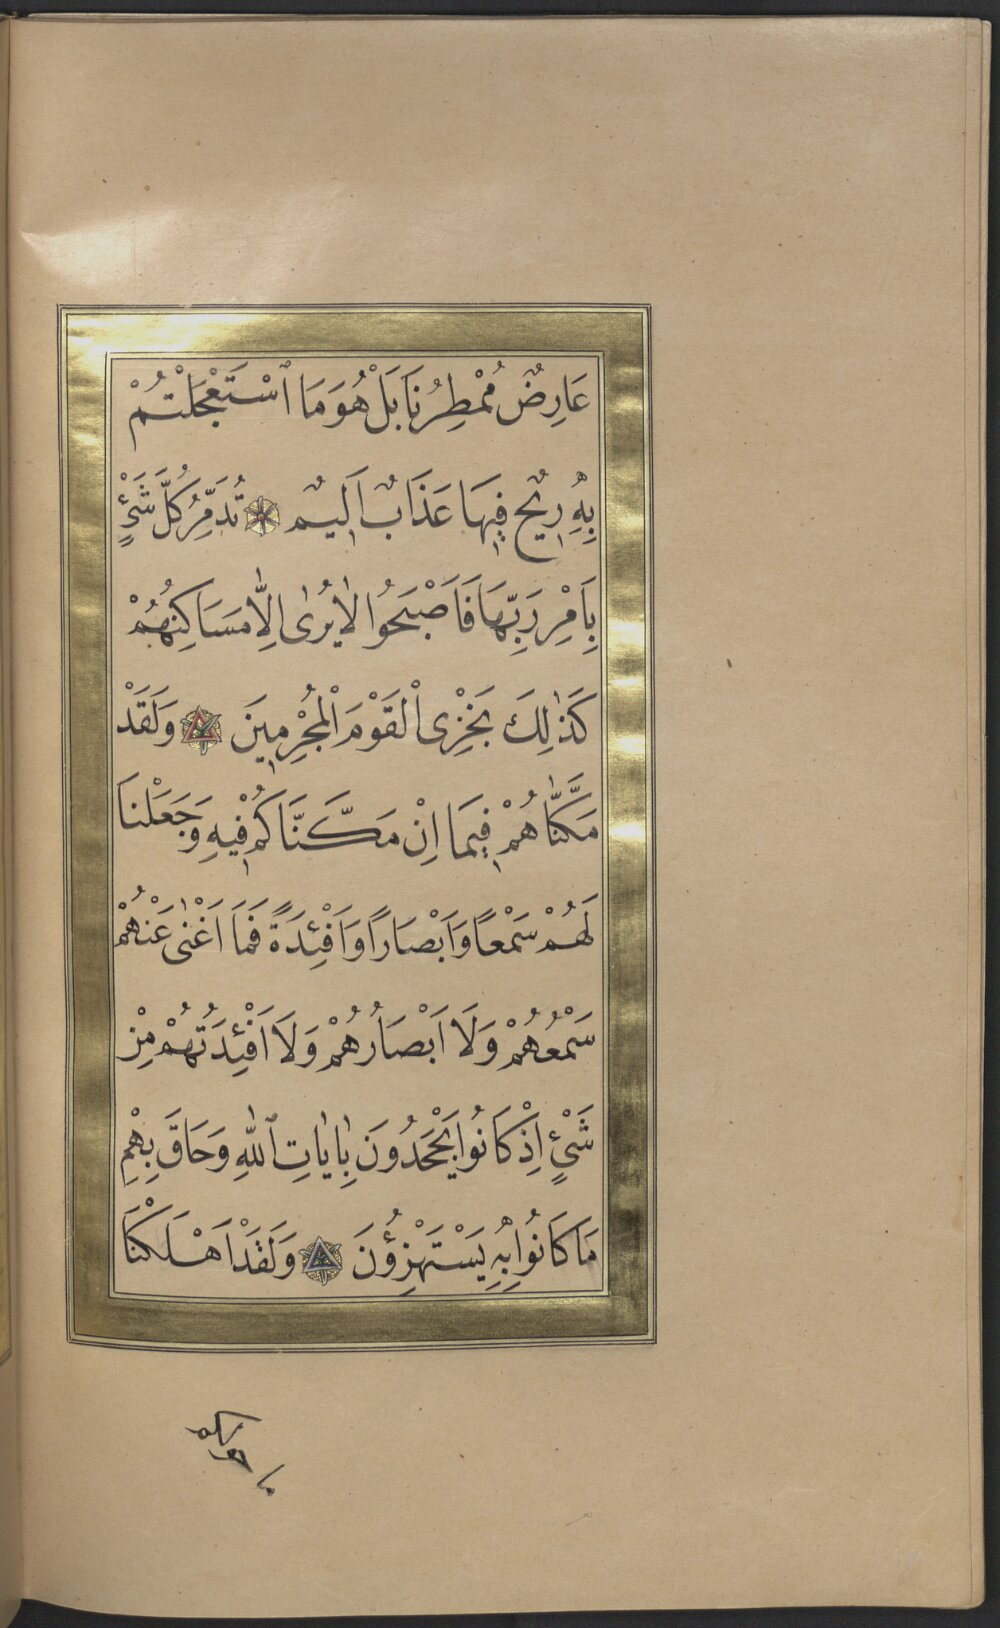 عَارِضٌ مُمْطِرُنَا بَلْ هُوَ مَا ٱسْتَعْجَلْتُمْ
بِهٖ رٖيحٌ فٖيهَا عَذَابٌ اَلٖيمٌ تُدَمِّرُ كُلَّ شَيْءٍ
بِاَمْرِ رَبِّهَا فَاَصْبَحُوا لَا يُرٰى اِلَّا مَسَاكِنُهُمْ
كَذٰلِكَ نَجْزِى الْقَوْمَ الْمُجْرِمٖينَ وَلَقَدْ
مَكَّنَّاهُمْ فٖيمَا اِنْ مَكَّنَّاكُمْ فٖيهِ وَجَعَلْنَا
لَهُمْ سَمْعًا وَاَبْصَارًا وَاَفْئِدَةً فَمَا اَغْنٰى عَنْهُمْ
سَمْعُهُمْ وَلَا اَبْصَارُهُمْ وَلَا اَفْئِدَتُهُمْ مِنْ
شَيْءٍ اِذْ كَانُوا يَجْحَدُونَ بِاٰيَاتِ ٱللّٰهِ وَحَاقَ بِهِمْ
مَا كَانُوا بِهٖ يَسْتَهْزِؤُنَ وَلَقَدْ اَهْلَكْنَا